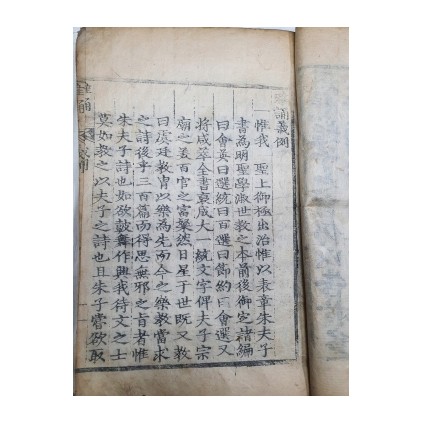 誦義例
一惟我 聖上御極出治惟以表章朱夫子
書為明聖學淑世教之本前後御定諸編
曰會英曰選統曰百選曰節約曰會選又
將咸萃全書裒成大一統文字俾夫子宗
廟之美百官之富粲然日星于世既又教
曰虞廷教胄以樂為先而今之樂教當求
之詩後乎三百篇而得思無邪之旨者惟
朱夫子詩也如欲鼓舞作興我待文之士
莫如教之以夫子之詩也且朱子嘗欲取